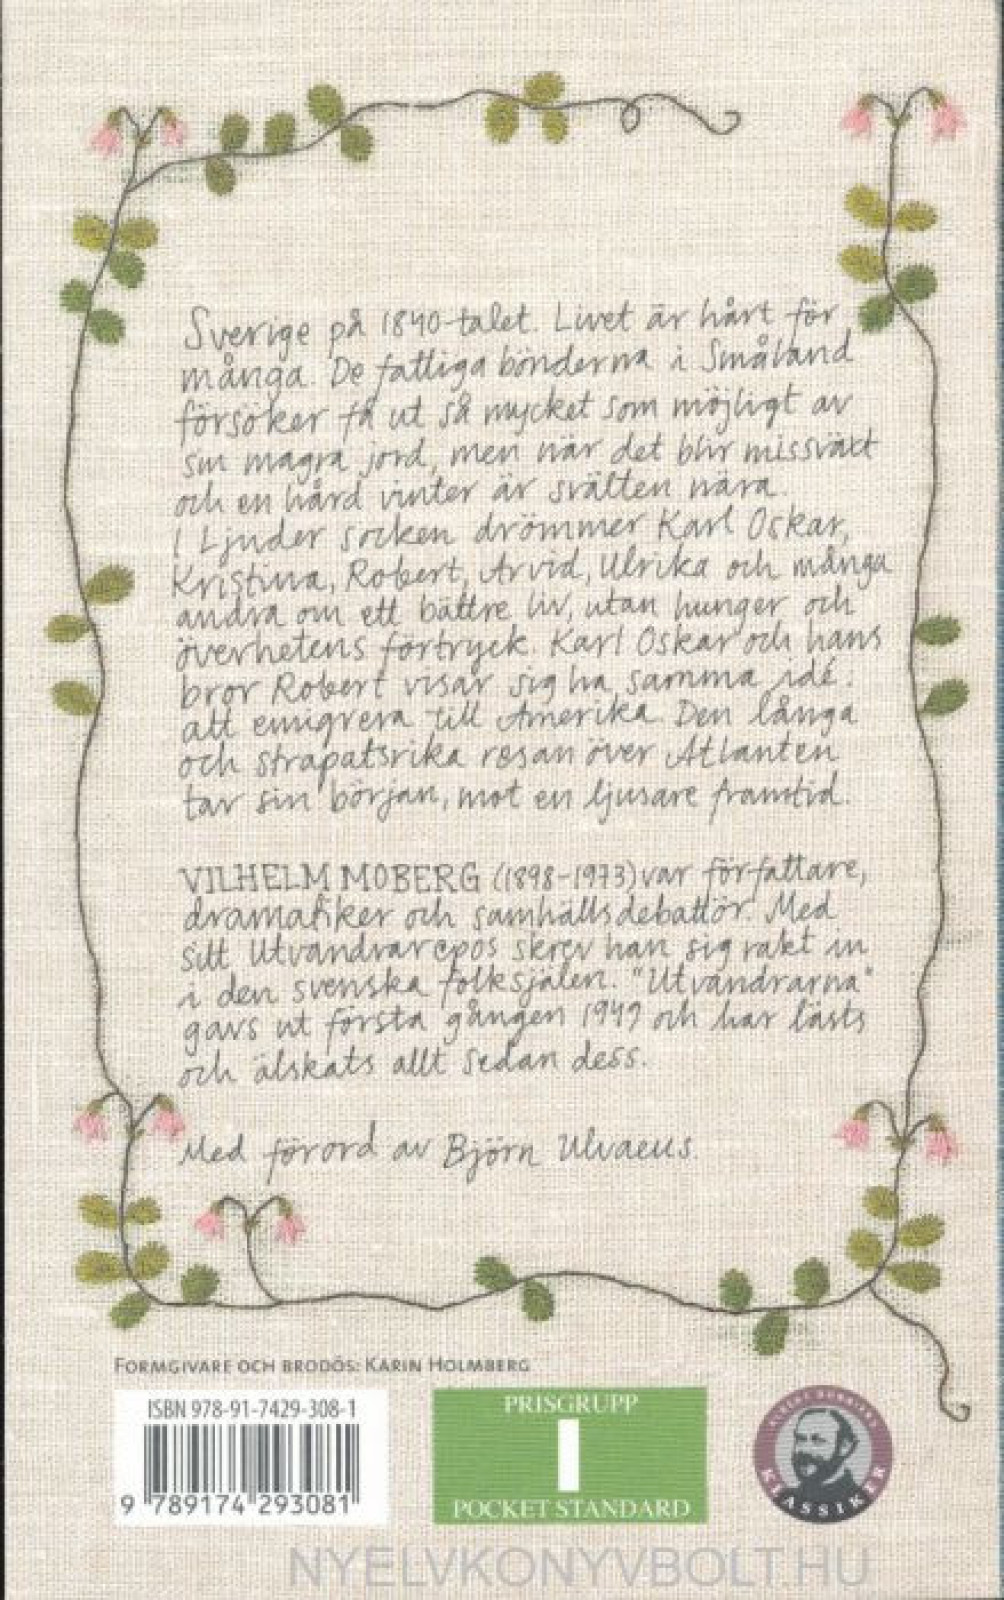 Sverige på 1840-talet. Livet är hårt för
många. De fattiga bönderna i Småland
försöker få ut så mycket som möjligt av
sin magra jord, men när det blir missväxt
och en hård vinter är svälten nära.
I Ljuder socken drömmer Karl Oskar,
Kristina, Robert, Arvid, Ulrika och många
andra om ett bättre liv, utan hunger och
överhetens förtryck. Karl Oskar och hans
bror Robert visar sig ha samma idé:
att emigrera till Amerika. Den långa
och strapatsrika resan över Atlanten
tar sin början, mot en ljusare framtid.
VILHELM MOBERG (1898-1973) var författare,
dramatiker och samhällsdebattör. Med
sitt Utvandrarepos skrev han sig rakt in
i den svenska folksjälen. "Utvandrarna"
gavs ut första gången 1949 och har lästs
och älskats allt sedan dess.
Med förord av Björn Ulvaeus
FORMGIVARE OCH BRODÖS: KARIN HOLMBERG
ISBN 978-91-7429-308-1
9 789174 293081
PRISGRUPP
1
POCKET STANDARD
ALBERT BONNIERS
KLASSIKER
NYELVKONYVBOLT.HU